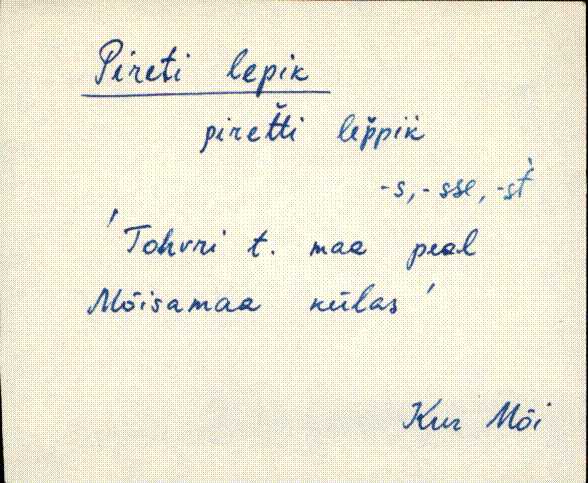 Pireti lepik
piret̆ti lep̆pik̆
-s, -sse, -st̀
'Tohvri t. maa peal
Mõisamaa külas'
Kur Mõi